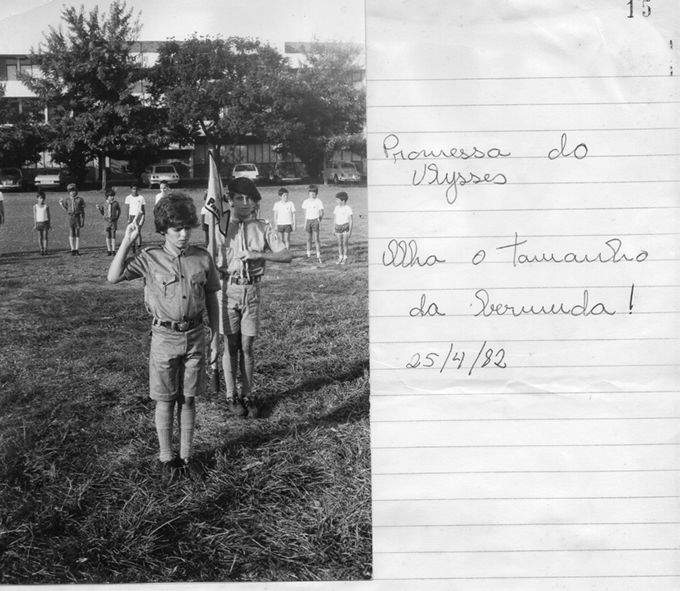 15
Promessa do
Ulysses
Olha o tamanho
da bermuda!
25/4/82